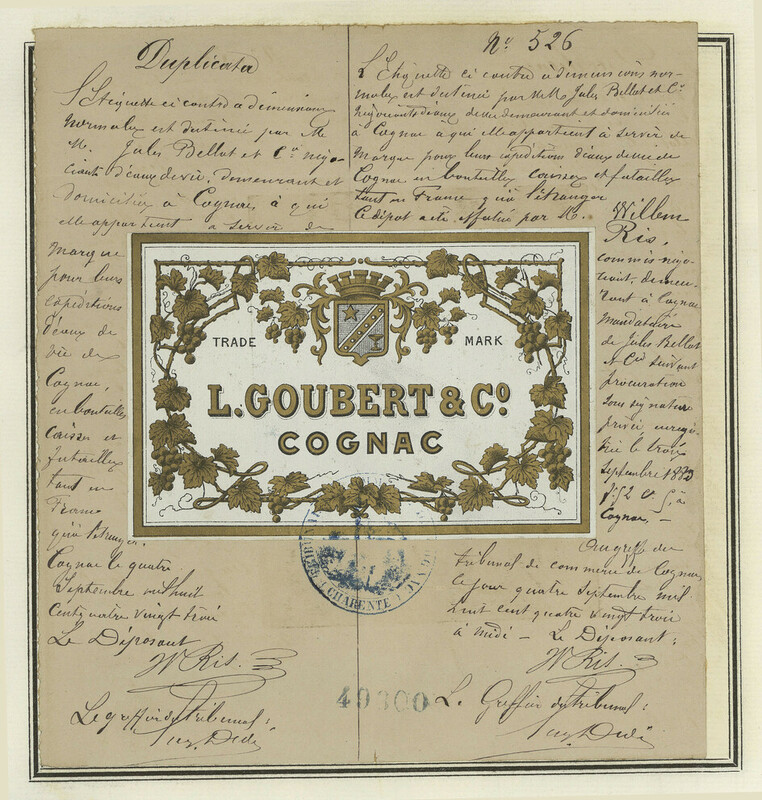 Duplicata
L'Etiquette ci contre a dimensions
normales est destinée par M
M. Jules Bellot et Cie négo-
ciants d'eaux de vie, demeurant et
domiciliés à Cognac, à qui
elle appartient à servir de
Marque
pour leurs
expéditions
d'eaux de
vie de
Cognac,
en bouteilles
caisses et
futailles
tant en
France
qu'à l'étranger.
Cognac le quatre
Septembre mil huit
cent quatre vingt trois
Le Déposant
W Ris.
Le greffier du tribunal:
No 526
L'Etiquette ci contre à dimensions nor-
males est destinée par M.M. Jules Bellot et Cie
négociants d'eaux de vie demeurant et domiciliés
à Cognac à qui elle appartient à servir de
Marque pour leurs expéditions d'eaux de vie de
Cognac en bouteilles caisses et futailles
tant en France qu'à l'étranger
Ce dépot a été effectué par M. Willem
Ris,
commis négo-
ciant, demeu-
rant à Cognac
Mandataire
de Jules Bellot
et Cie suivant
procuration
sous signature
privée enregis-
trée le trois
Septembre 1883
à
Cognac. —
Au greffe du
tribunal de commerce de Cognac
ce jour quatre Septembre mil
huit cent quatre vingt trois
à midi — Le Déposant:
W Ris.
Le Greffier du tribunal:
TRADE MARK
L. GOUBERT & Co.
COGNAC
CHARENTE
49300